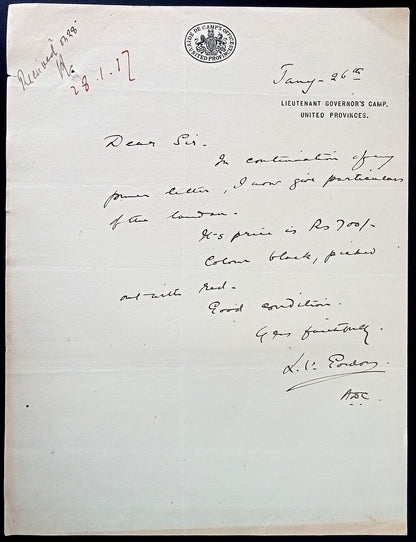 Received on 28
28.1.17
AIDE DE CAMP'S OFFICE
UNITED PROVINCES
Jany - 26th
LIEUTENANT GOVERNOR'S CAMP,
UNITED PROVINCES.
Dear Sir -
In continuation of my
letter, I now give particulars
of the landau -
Its price is Rs 700/-
Colour black, picked
out with Red -
Good condition.
Yrs faithfully.
Gordon
ADC.